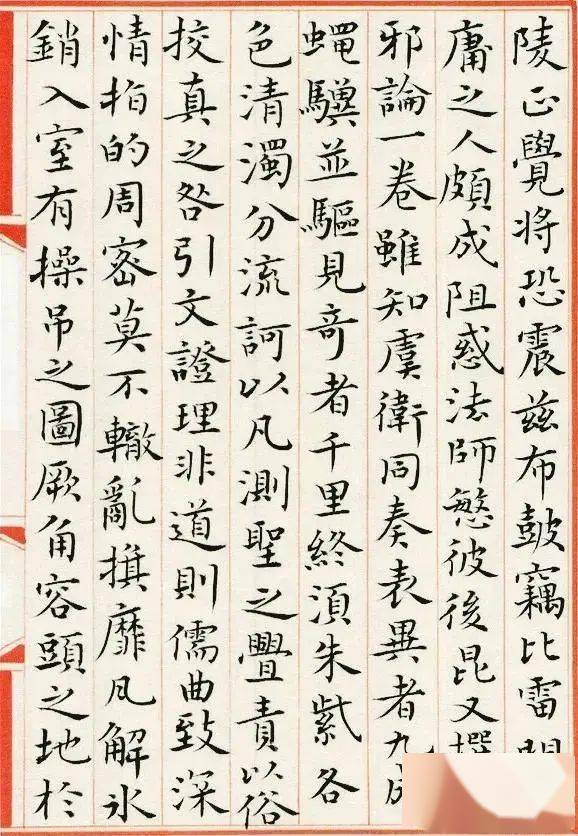 陵正覺將恐震茲布鼓竊比雷門
庸之人頗成阻惑法師愍彼後昆又撰
邪論一卷雖知虞衛同奏表異者九成
蠅驥並驅見奇者千里終須朱紫各
色清濁分流訶以凡測聖之舋責以俗
挍真之咎引文證理非道則儒曲致深
情指的周密莫不轍亂旗靡瓦解冰
銷入室有操吊之圖厥角容頭之地於